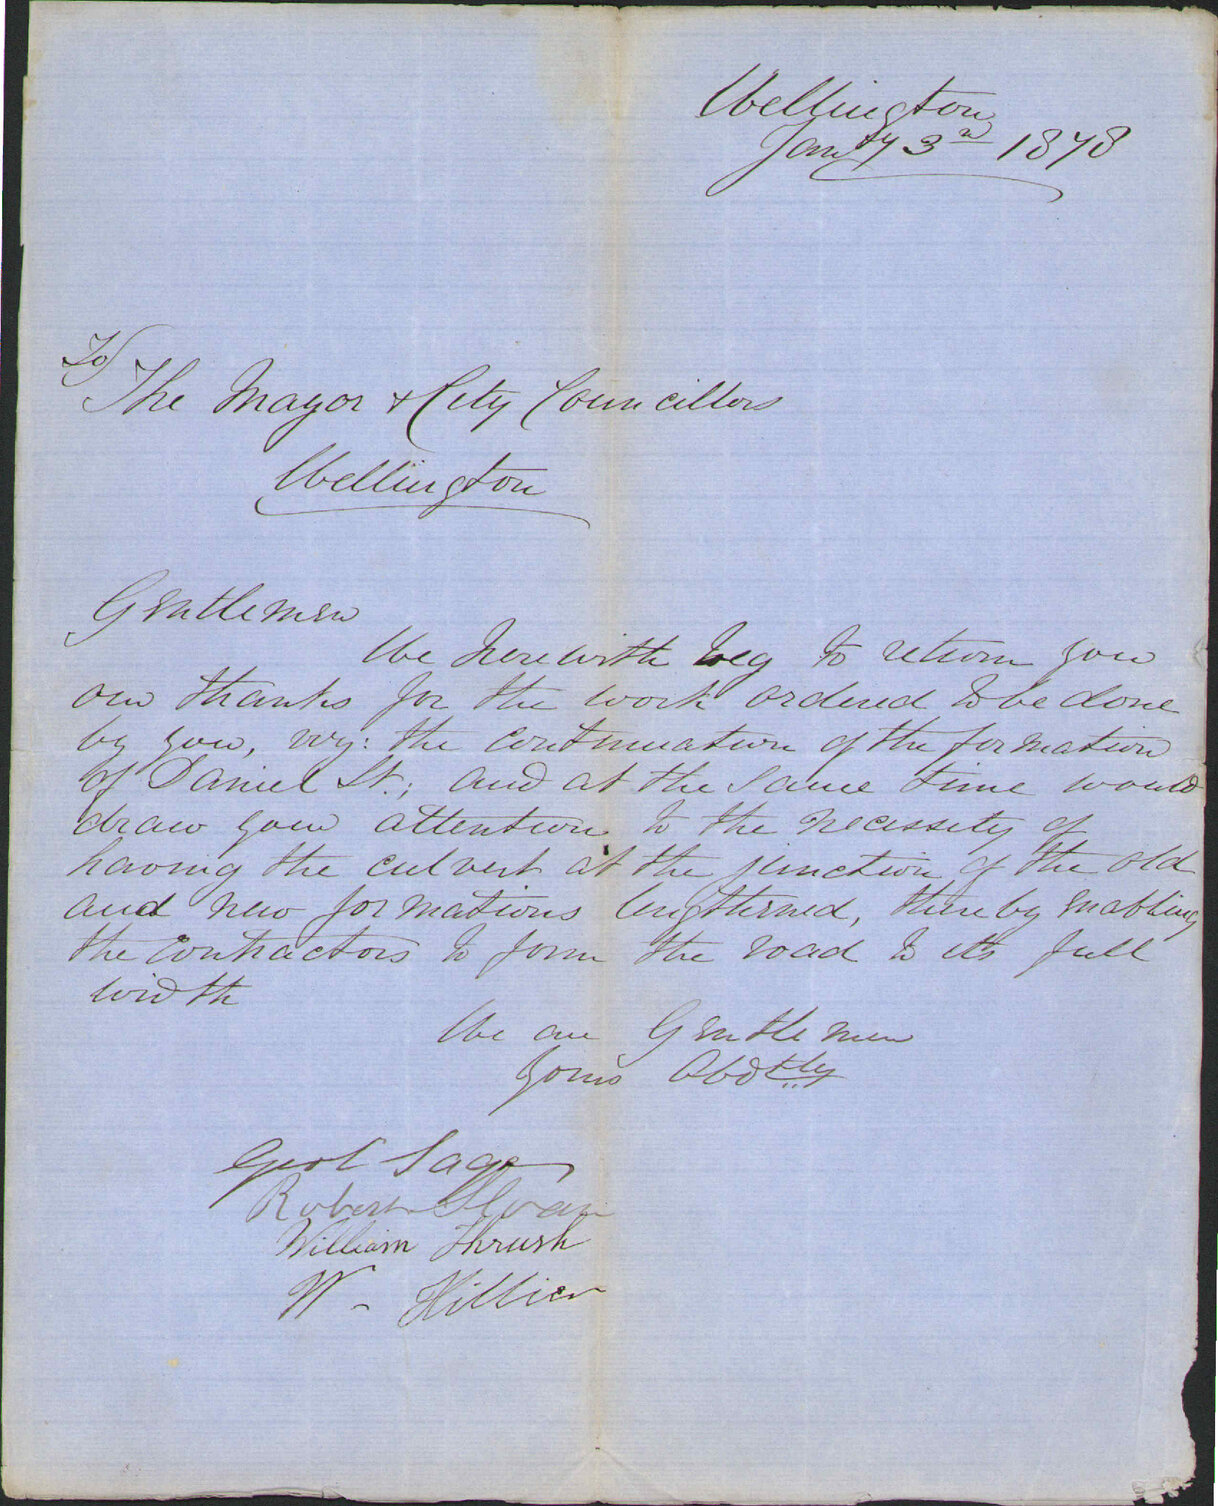 Wellington
Jany 3rd 1878
To
The Mayor & City Councillors
Wellington
Gentlemen
We herewith beg to return you
our thanks for the work ordered to be done
by you, viz: the continuation of the formation
of Daniel St.; and at the same time would
draw your attention to the necessity of
having the culvert at the junction of the old
and new formations lengthened, thereby enabling
the contractors to form the road to its full
width
We are Gentlemen
Yours Obdtly
Sage
Robert Sloan
William Thrush
W- Hillier